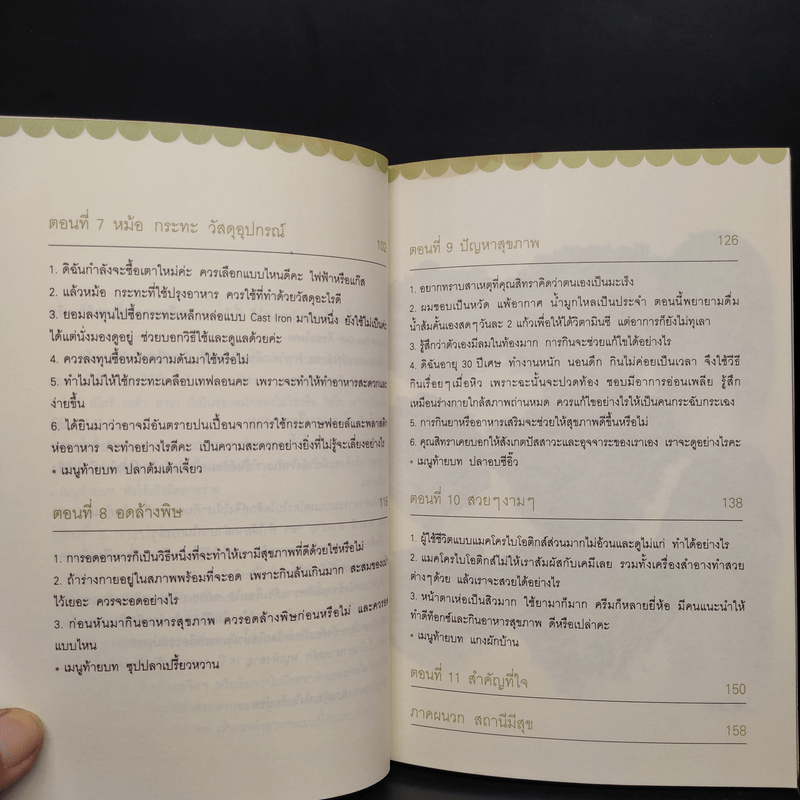 ตอนที่ 7 หม้อ กระทะ วัสดุอุปกรณ์
102
1. ดิฉันกำลังจะซื้อเตาใหม่ค่ะ ควรเลือกแบบไหนดีคะ ไฟฟ้าหรือแก๊ส
2. แล้วหม้อ กระทะที่ใช้ปรุงอาหาร ควรใช้ที่ทำด้วยวัสดุอะไรดี
3. ยอมลงทุนไปซื้อกระทะเหล็กหล่อแบบ Cast Iron มาใบหนึ่ง ยังใช้ไม่เป็นค่ะ
ได้แต่นั่งมองดูอยู่ ช่วยบอกวิธีใช้และดูแลด้วยค่ะ
4. ควรลงทุนซื้อหม้อความดันมาใช้หรือไม่
5. ทำไมไม่ให้ใช้กระทะเคลือบเทฟลอนคะ เพราะจะทำให้ทำอาหารสะดวกและ
ง่ายขึ้น
6. ได้ยินมาว่าอาจมีอันตรายปนเปื้อนจากการใช้กระดาษฟอยล์และพลาสติก
ห่ออาหาร จะทำอย่างไรดีคะ เป็นความสะดวกอย่างยิ่งที่ไม่รู้จะเลี่ยงอย่างไร
• เมนูท้ายบท ปลาต้มเต้าเจี้ยว
ตอนที่ 8 อดล้างพิษ
116
1. การอดอาหารก็เป็นวิธีหนึ่งที่จะทำให้เรามีสุขภาพที่ดีด้วยใช่หรือไม่
2. ถ้าร่างกายอยู่ในสภาพพร้อมที่จะอด เพราะกินล้นเกินมาก สะสมของเน่า
ไว้เยอะ ควรจะอดอย่างไร
3. ก่อนหันมากินอาหารสุขภาพ ควรอดล้างพิษก่อนหรือไม่ และควรอด
แบบไหน
• เมนูท้ายบท ซุปปลาเปรี้ยวหวาน
ตอนที่ 9 ปัญหาสุขภาพ 126
1. อยากทราบสาเหตุที่คุณสิทราคิดว่าตนเองเป็นมะเร็ง
2. ผมชอบเป็นหวัด แพ้อากาศ น้ำมูกไหลเป็นประจำ ตอนนี้พยายามดื่ม
น้ำส้มคั้นเองสดๆวันละ 2 แก้วเพื่อให้ได้วิตามินซี แต่อาการก็ยังไม่ทุเลา
3. รู้สึกว่าตัวเองมีลมในท้องมาก การกินจะช่วยแก้ไขได้อย่างไร
4. ดิฉันอายุ 30 ปีเศษ ทำงานหนัก นอนดึก กินไม่ค่อยเป็นเวลา จึงใช้วิธี
กินเรื่อยๆเมื่อหิว เพราะฉะนั้นจะปวดท้อง ชอบมีอาการอ่อนเพลีย รู้สึก
เหมือนร่างกายใกล้สภาพถ่านหมด ควรแก้ไขอย่างไรให้เป็นคนกระฉับกระเฉง
5. การกินยาหรืออาหารเสริมจะช่วยให้สุขภาพดีขึ้นหรือไม่
6. คุณสิทราเคยบอกให้สังเกตปัสสาวะและอุจจาระของเราเอง เราจะดูอย่างไรคะ
• เมนูท้ายบท ปลาอบซีอิ๊ว
ตอนที่ 10 สวยๆงามๆ 138
1. ผู้ใช้ชีวิตแบบแมคโครไบโอติกส์ส่วนมากไม่อ้วนและดูไม่แก่ ทำได้อย่างไร
2. แมคโครไบโอติกส์ไม่ให้เราสัมผัสกับเคมีเลย รวมทั้งเครื่องสำอางทำสวย
ต่างๆด้วย แล้วเราจะสวยได้อย่างไร
3. หน้าตาเห่อเป็นสิวมาก ใช้ยามาก็มาก ครีมก็หลายยี่ห้อ มีคนแนะนำให้
ทำดีท็อกซ์และกินอาหารสุขภาพ ดีหรือเปล่าคะ
• เมนูท้ายบท แกงผักบ้าน
ตอนที่ 11 สำคัญที่ใจ 150
ภาคผนวก สถานีมีสุข 158